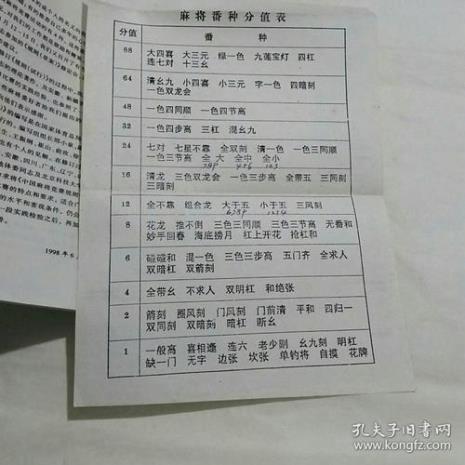 麻将番种分值表
分值 番种
88 大四喜 大三元 绿一色 九莲宝灯 四杠
连七对 十三幺
64 清幺九 小四喜 小三元 字一色 四暗刻
一色双龙会
48 一色四同顺 一色四节高
32 一色四步高 三杠 混幺九
24 七对 七星不靠 全双刻 清一色 一色三同顺
一色三节高 全大 全中 全小
789 456 123
16 清龙 三色双龙会 一色三步高 全带五 三同刻
三暗刻
12 全不靠 组合龙 大于五 小于五 三风刻
6789 1234
8 花龙 推不倒 三色三同顺 三色三节高 无番和
妙手回春 海底捞月 杠上开花 抢杠和
6 碰碰和 混一色 三色三步高 五门齐 全求人
双暗杠 双箭刻
4 全带幺 不求人 双明杠 和绝张
2 箭刻 圈风刻 门风刻 门前清 平和 四归一
双同刻 双暗刻 暗杠 断幺
1 一般高 喜相逢 连六 老少副 幺九刻 明杠
缺一门 无字 边张 坎张 单钓将 自摸 花牌
1998年6
孔夫子旧书网
www.kongfz.com